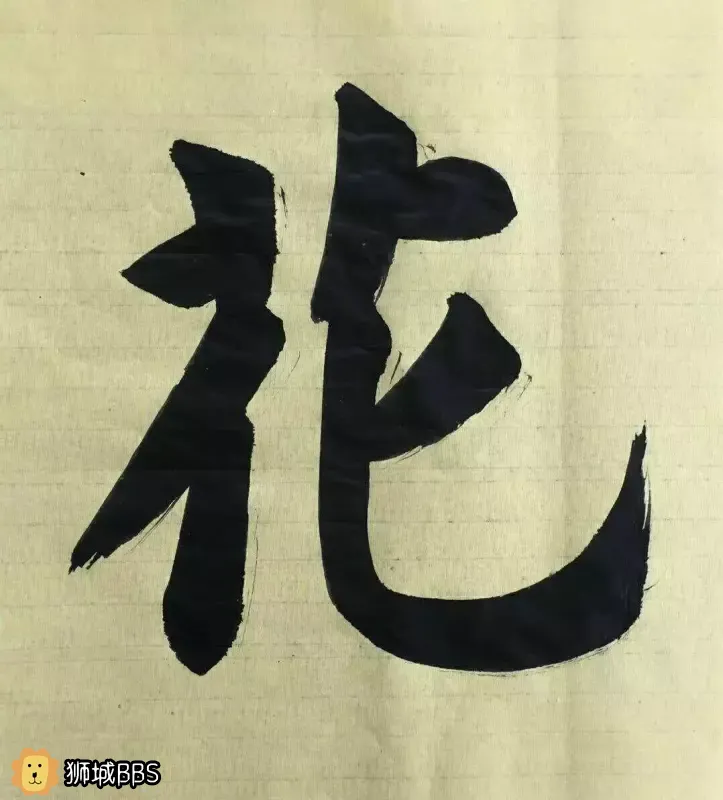 花
狮城BBS